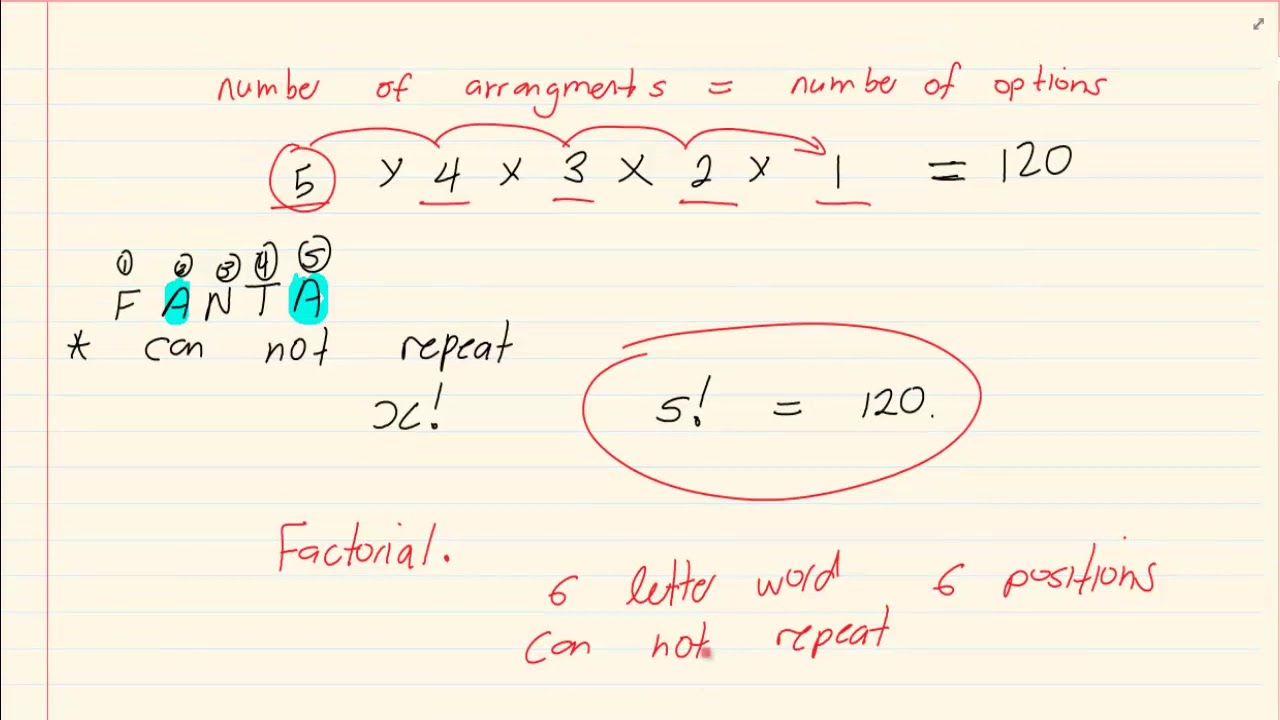 number of arrangments = number of options
5 x 4 x 3 x 2 x 1 = 120
① ② ③ ④ ⑤
F A N T A
* can not repeat
x!
5! = 120.
Factorial.
6 letter word 6 positions
can not repeat